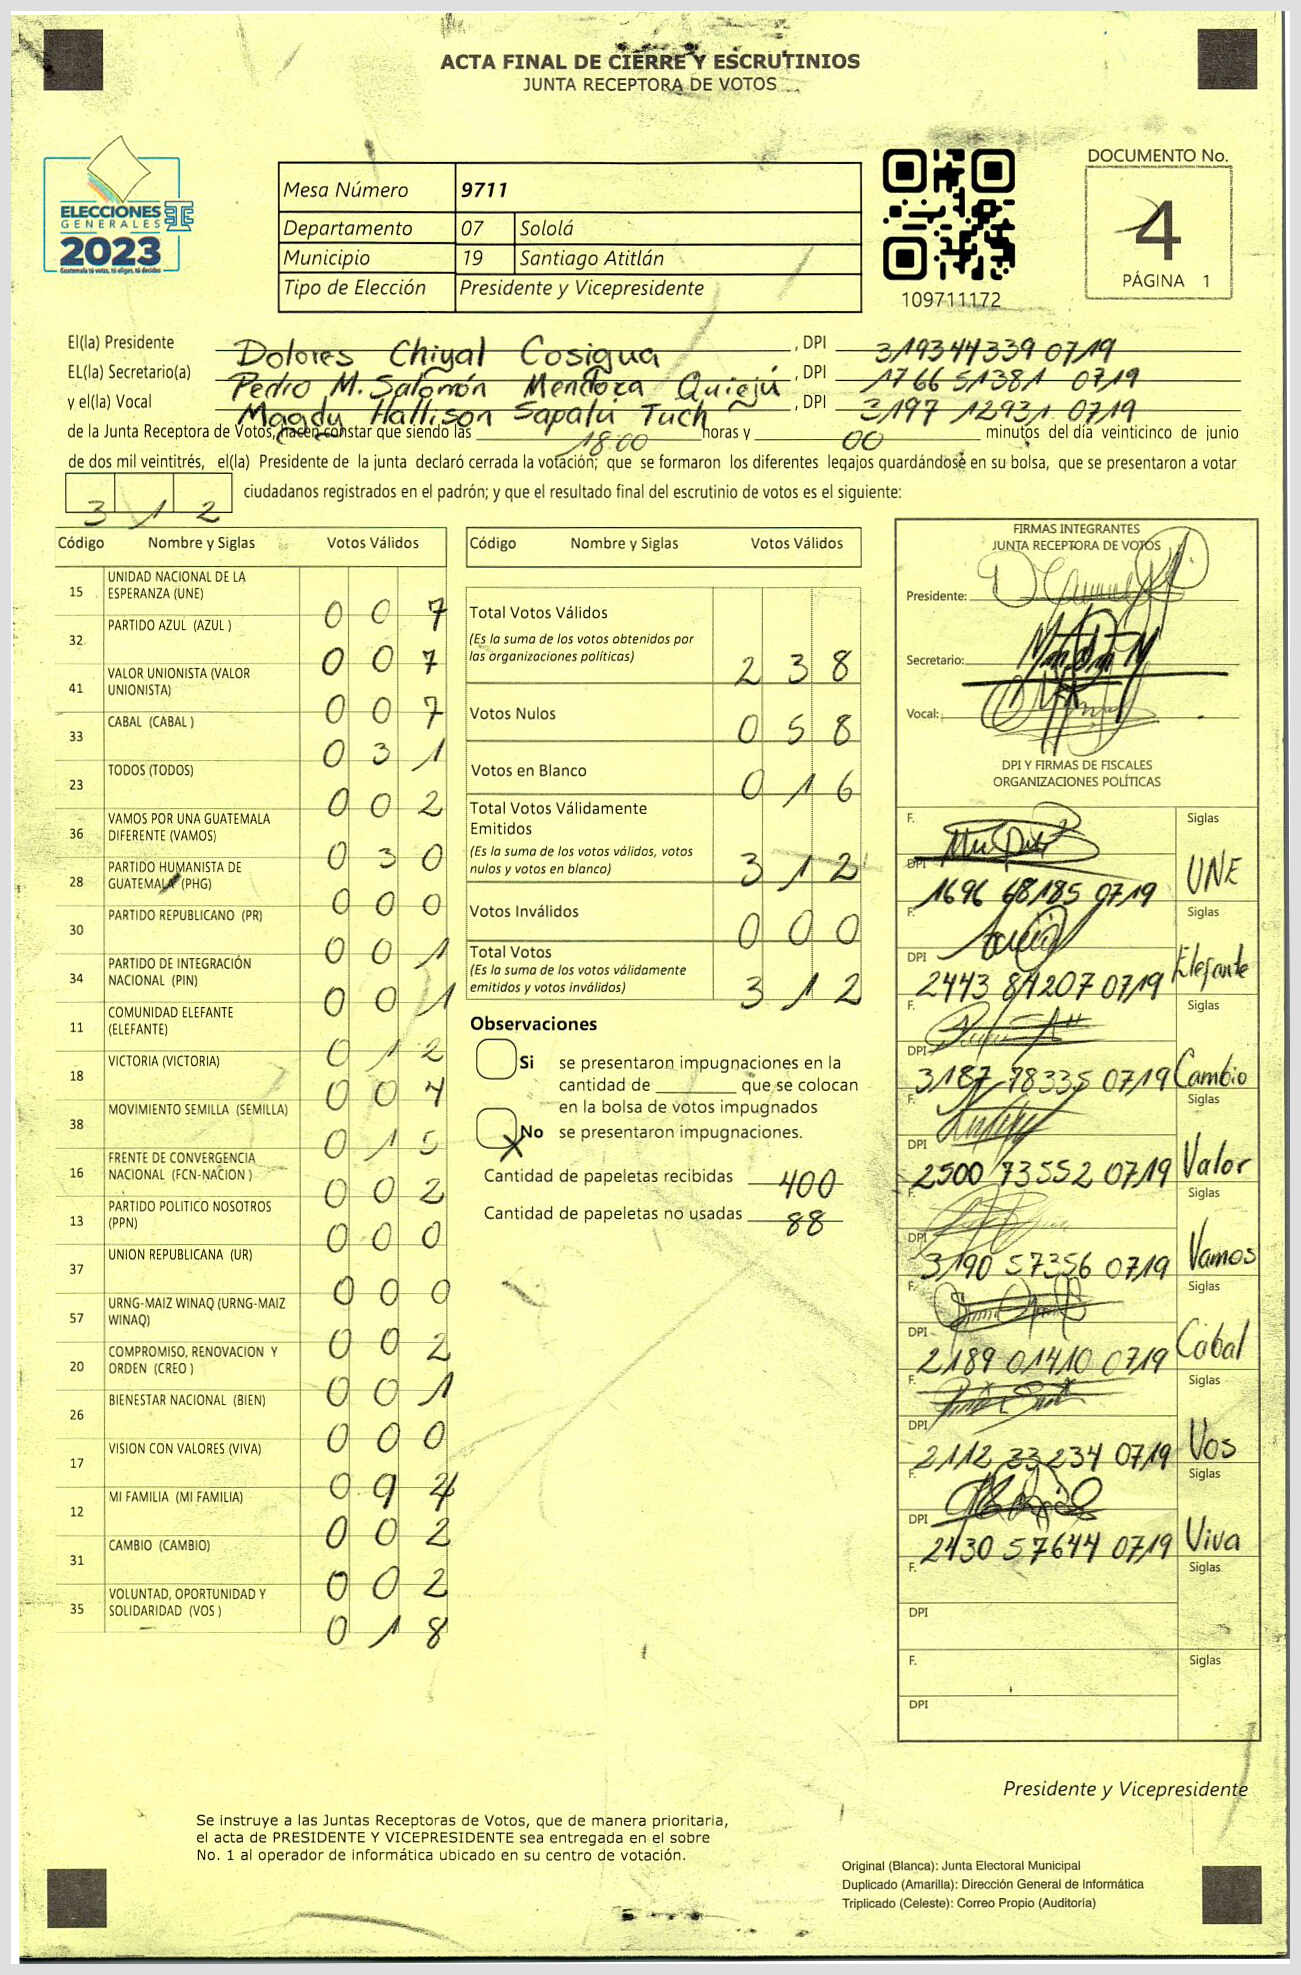 ACTA FINAL DE CIERRE Y ESCRUTINIOS
JUNTA RECEPTORA DE VOTOS
ELECCIONES
GENERALES
2023
Guatemala tú votas, tú eliges, tú decides
Mesa Número 9711
Departamento 07 Sololá
Municipio 19 Santiago Atitlán
Tipo de Elección Presidente y Vicepresidente
109711172
DOCUMENTO No.
4
PÁGINA 1
El(la) Presidente Dolores Chiyal Cosigua , DPI 319344339 0719
EL(la) Secretario(a) Pedro M. Salomón Mendoza Quiejú , DPI 1766 51381 0719
y el(la) Vocal Magdy Hallison Sapalú Tuch , DPI 3197 12931 0719
de la Junta Receptora de Votos, hacen constar que siendo las 18:00 horas y 00 minutos del día veinticinco de junio
de dos mil veintitrés, el(la) Presidente de la junta declaró cerrada la votación; que se formaron los diferentes legajos guardándose en su bolsa, que se presentaron a votar
3 1 2 ciudadanos registrados en el padrón; y que el resultado final del escrutinio de votos es el siguiente:
Código Nombre y Siglas Votos Válidos
15 UNIDAD NACIONAL DE LA ESPERANZA (UNE) 0 0 7
32 PARTIDO AZUL (AZUL ) 0 0 7
41 VALOR UNIONISTA (VALOR UNIONISTA) 0 0 7
33 CABAL (CABAL ) 0 3 1
23 TODOS (TODOS) 0 0 2
36 VAMOS POR UNA GUATEMALA DIFERENTE (VAMOS) 0 3 0
28 PARTIDO HUMANISTA DE GUATEMALA (PHG) 0 0 0
30 PARTIDO REPUBLICANO (PR) 0 0 1
34 PARTIDO DE INTEGRACIÓN NACIONAL (PIN) 0 0 1
11 COMUNIDAD ELEFANTE (ELEFANTE) 0 1 2
18 VICTORIA (VICTORIA) 0 0 4
38 MOVIMIENTO SEMILLA (SEMILLA) 0 1 5
16 FRENTE DE CONVERGENCIA NACIONAL (FCN-NACION ) 0 0 2
13 PARTIDO POLITICO NOSOTROS (PPN) 0 0 0
37 UNION REPUBLICANA (UR) 0 0 0
57 URNG-MAIZ WINAQ (URNG-MAIZ WINAQ) 0 0 2
20 COMPROMISO, RENOVACION Y ORDEN (CREO ) 0 0 1
26 BIENESTAR NACIONAL (BIEN) 0 0 0
17 VISION CON VALORES (VIVA) 0 9 4
12 MI FAMILIA (MI FAMILIA) 0 0 2
31 CAMBIO (CAMBIO) 0 0 2
35 VOLUNTAD, OPORTUNIDAD Y SOLIDARIDAD (VOS ) 0 1 8
Código Nombre y Siglas Votos Válidos
Total Votos Válidos
(Es la suma de los votos obtenidos por
las organizaciones políticas) 2 3 8
Votos Nulos 0 5 8
Votos en Blanco 0 1 6
Total Votos Válidamente
Emitidos
(Es la suma de los votos válidos, votos
nulos y votos en blanco) 3 1 2
Votos Inválidos 0 0 0
Total Votos
(Es la suma de los votos válidamente
emitidos y votos inválidos) 3 1 2
Observaciones
Si se presentaron impugnaciones en la
cantidad de ________ que se colocan
en la bolsa de votos impugnados
X No se presentaron impugnaciones.
Cantidad de papeletas recibidas 400
Cantidad de papeletas no usadas 88
FIRMAS INTEGRANTES
JUNTA RECEPTORA DE VOTOS
Presidente:
Secretario:
Vocal:
DPI Y FIRMAS DE FISCALES
ORGANIZACIONES POLÍTICAS
F. Siglas
DPI 1696 68185 0719 UNE
F. Siglas
DPI 2443 84207 0719 Elefante
F. Siglas
DPI 3187 78335 0719 Cambio
F. Siglas
DPI 2500 73552 0719 Valor
F. Siglas
DPI 3190 57356 0719 Vamos
F. Siglas
DPI 2189 01410 0719 Cabal
F. Siglas
DPI 2112 33234 0719 Vos
F. Siglas
DPI 2430 57644 0719 Viva
F. Siglas
DPI
F. Siglas
DPI
Presidente y Vicepresidente
Se instruye a las Juntas Receptoras de Votos, que de manera prioritaria,
el acta de PRESIDENTE Y VICEPRESIDENTE sea entregada en el sobre
No. 1 al operador de informática ubicado en su centro de votación.
Original (Blanca): Junta Electoral Municipal
Duplicado (Amarilla): Dirección General de Informática
Triplicado (Celeste): Correo Propio (Auditoría)